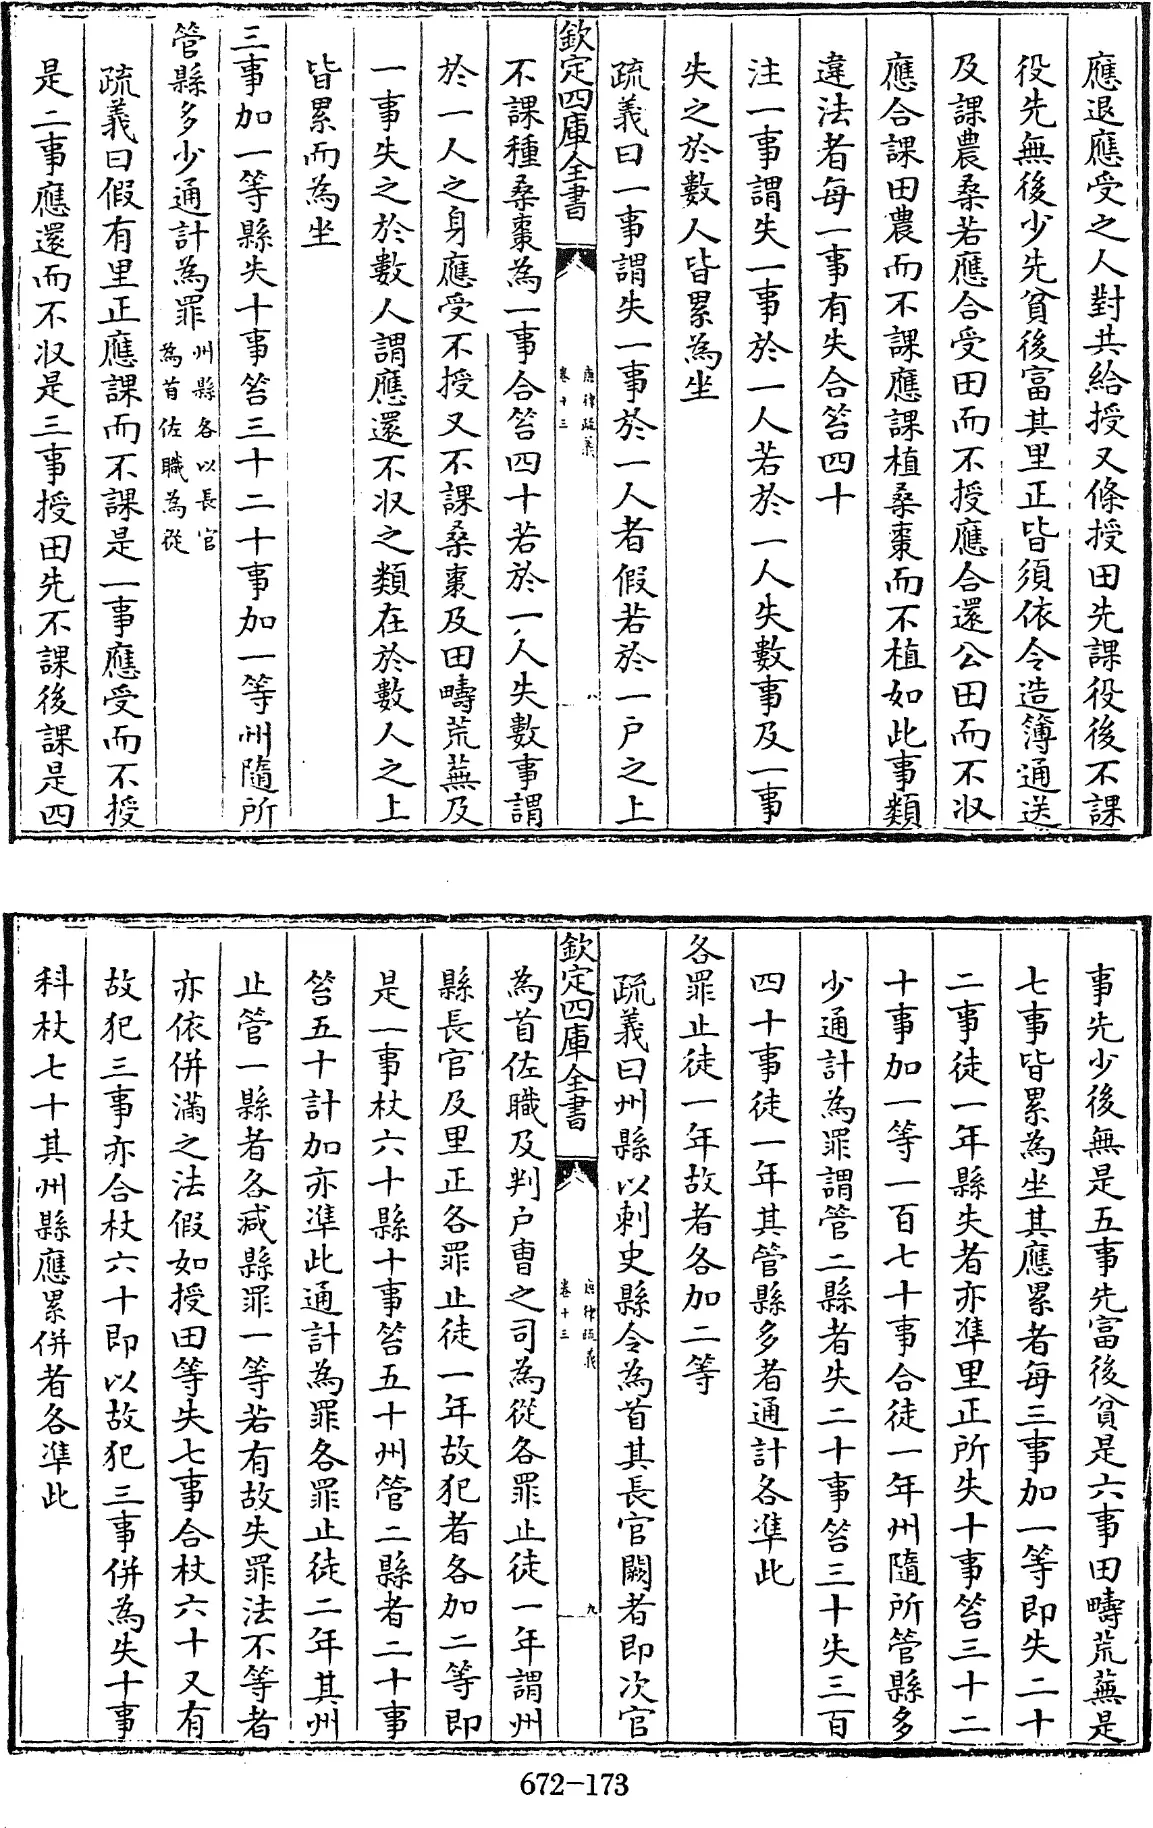 應退應受之人對共給授又條授田先課役後不課
役先無後少先貧後富其里正皆須依令造簿通送
及課農桑若應合受田而不授應合還公田而不收
應合課田農而不課應課植桑棗而不植如此事類
違法者每一事有失合笞四十
注一事謂失一事於一人若於一人失數事及一事
失之於數人皆累為坐
疏義曰一事謂失一事於一人者假若於一戶之上
欽定四庫全書
唐律疏義
卷十三
八
不課種桑棗為一事合笞四十若於一人失數事謂
於一人之身應受不授又不課桑棗及田疇荒蕪及
一事失之於數人謂應還不收之類在於數人之上
皆累而為坐
三事加一等縣失十事笞三十二十事加一等州隨所
管縣多少通計為罪州縣各以長官
為首佐職為從
疏義曰假有里正應課而不課是一事應受而不授
是二事應還而不收是三事授田先不課後課是四
事先少後無是五事先富後貧是六事田疇荒蕪是
七事皆累為坐其應累者每三事加一等即失二十
二事徒一年縣失者亦準里正所失十事笞三十二
十事加一等一百七十事合徒一年州隨所管縣多
少通計為罪謂管二縣者失二十事笞三十失三百
四十事徒一年其管縣多者通計各準此
各罪止徒一年故者各加二等
疏義曰州縣以刺史縣令為首其長官闕者即次官
欽定四庫全書
唐律疏義
卷十三
九
為首佐職及判戶曹之司為從各罪止徒一年謂州
縣長官及里正各罪止徒一年故犯者各加二等即
是一事杖六十縣十事笞五十州管二縣者二十事
笞五十計加亦準此通計為罪各罪止徒二年其州
止管一縣者各減縣罪一等若有故失罪法不等者
亦依併滿之法假如授田等失七事合杖六十又有
故犯三事亦合杖六十即以故犯三事併為失十事
科杖七十其州縣應累併者各準此
672-173